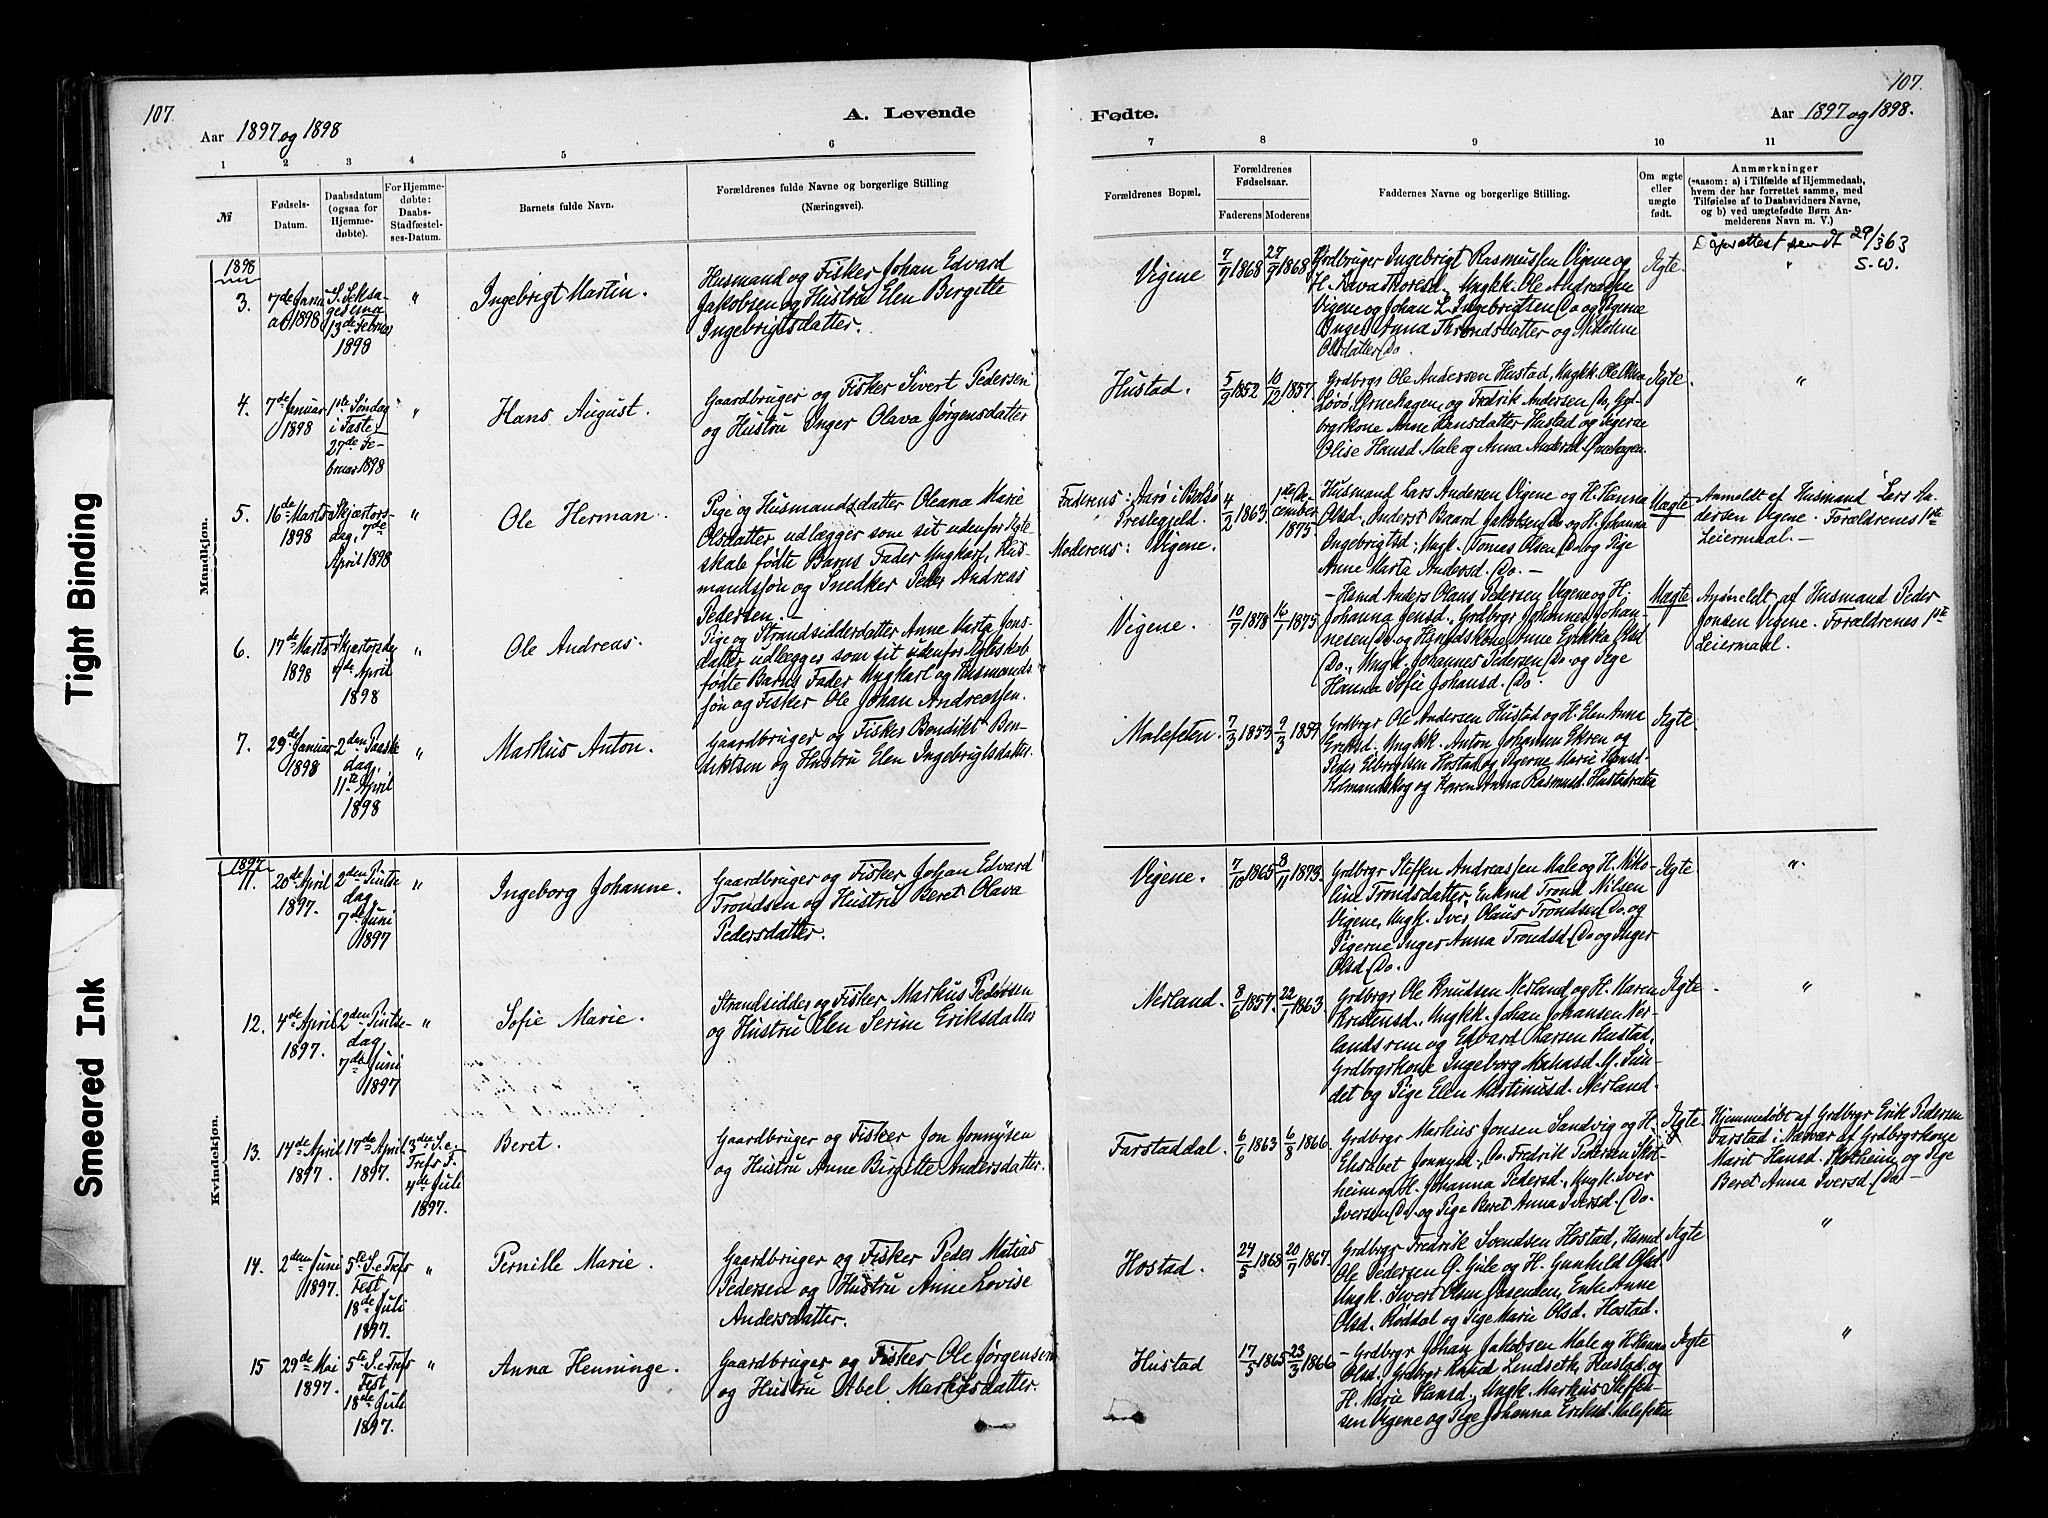 107.
Aar 1897 og 1898
A. Levende
1 2 3 4 5 6
№
Fødsels-
Datum.
Daabsdatum
(ogsaa for
Hjemme-
døbte).
For Hjemme-
døbte:
Daabs-
Stadfæstel-
ses-Datum.
Barnets fulde Navn.
Forældrenes fulde Navne og borgerlige Stilling
(Næringsvei).
Mandkjøn.
1898
3.
7de Janu
ar 1898
S. Seksa-
gesima
13de Februar
1898
"
Ingebrigt Martin.
Husmand og Fisker Johan Edvard
Jakobsen og Hustru Elen Birgitte
Ingebrigtsdatter.
4.
7de Januar
1898
1ste Søndag
i Faste
27de Fe-
bruar 1898
"
Hans August.
Gaardbruger og Fisker Sivert Pedersen
og Hustru Inger Olava Jørgensdatter
5.
16de Marts
1898
Skjærtors-
dag, 7de
April 1898
"
Ole Herman.
Pige og Husmandsdatter Oleana Marie
Olsdatter udlægger som sit udenfor Ægte-
skab fødte Barns Fader Ungkarl, Hus-
mandssøn og Snedker Peder Andreas
Pedersen.
6.
17de Marts
1898
Skjærtorsdag
7de April
1898
"
Ole Andreas.
Pige og Strandsidderdatter Anne Marta Jons-
datter udlægger som sit udenfor Ægteskab
fødte Barns Fader Ungkarl og Husmands-
søn og Fisker Ole Johan Andreassen.
7.
29de Januar
1898
2den Paaske
dag,
11te April
1898
"
Markus Anton.
Gaardbruger og Fisker Bendikt Ben-
diktsen og Hustru Elen Ingebrigtsdatter.
Kvindekjøn.
1897
11.
20de April
1897.
2den Pintse
dag,
7de Juni
1897
"
Ingeborg Johanne.
Gaardbruger og Fisker Johan Edvard
Trondsen og Hustru Beret Olava
Pedersdatter.
12.
4de April
1897.
2den Pintse-
dag,
7de Juni
1897
"
Sofie Marie.
Strandsidder og Fisker Markus Pedersen
og Hustru Elen Serine Eriksdatter
13.
14de April
1897.
17de April
1897.
3die S. e.
Trefs F.
4de Juli
1897.
Beret.
Gaardbruger og Fisker Jon Jonnysen
og Hustru Anne Birgitte Andersdatter.
14.
2den Juni
1897.
5te S. e. Trefs
Fest
18de Juli
1897.
"
Pernille Marie.
Gaardbruger og Fisker Peder Matias
Pedersen og Hustru Anne Lovise
Andersdatter.
15
29de Mai
1897.
5te S. e. Trefs
Fest
18de Juli
1897.
"
Anna Henninge.
Gaardbruger og Fisker Ole Jørgensen
og Hustru Abel Markusdatter.
107.
Fødte.
Aar 1897 og 1898.
7 8 9 10 11
Forældrenes Bopæl.
Forældrenes
Fødselsaar.
Faderens Moderens
Faddernes Navne og borgerlige Stilling.
Om ægte
eller
uægte
født.
Anmærkninger
(saasom: a) i Tilfælde af Hjemmedaab,
hvem der har forrettet samme, med
Tilføielse af to Daabsvidners Navne,
og b) ved uægtefødte Børn An-
melderens Navn m. V.)
Vigene
7/9 1868
27/9 1868
Grdbruger Ingebrigt Rasmussen Vigene og
H. Ungk. Ole Andreassen
Vigene og Johan L. Ingebrigtsen (Do og Pigerne
Inger Anna Throndsdatter og
Olsdatter (Do.
Ægte.
Daapsattest sendt 29/3 63
" S.W.
Hustad.
5/9 1852
10/12 1857.
Grdbrgr Ole Andersen Hustad, Ungkk. Ole Olsen
og Fredrik Andersen (Do, Grd-
brgrkone Anne Hansdatter Hustad og Pigerne
Olise Hansd. Male og Anna Andersd.
Ægte.
"
Faderens: Aarø i Bolsø
Præstegjeld.
Moderens: Vigene.
4/2 1863.
1ste De-
cember
1875
Husmand Lars Andersen Vigene og H. Hanna
Olsd., Baard Jakobsen (Do og H. Johanna
Ingebrigtsd., Ungk. Tomas Olsen (Do. og Pige
Anne Marta Andersd. (Do. —
Uægte
Anmeldt af Husmand Lars An-
dersen Vigene. Forældrenes 1ste
Leiermaal. —
Vigene.
10/7 1878
16/7 1875
— Hsmd Anders Olaus Pedersen Vigene og H.
Johanna Jensd., Grdbrgr Johannes Johan-
nesen (Do og Hsmdskone Anne Erikka Olsd
(Do., Ungk. Johannes Pedersen (Do. og Pige
Hanna Sofie Johansd. (Do.
Uægte
Anmeldt af Husmand Peder
Jonsen Vigene. Forældrenes 1ste
Leiermaal.
Malefeten
7/3 1853
9/3 1859
Grdbrgr Ole Andersen Hustad og H. Elen Anna
Eriksd., Ungkk. Anton Johansen Ekren og
Peder Hostad og Pigerne Marie Hansd.
Kolmandskog og Karen Anna Rasmusd. Hustad
Ægte
Vigene.
7/10 1865
8/11 1873.
Grdbrgr Steffen Andreassen Male og H. Niko-
line Trondsdatter, Enkmd Trond Nilsen
Vigene, Ungk. Iver Olaus Trondsen (Do. og
Pigerne Inger Anna Trondsd. (Do og Inger
Olsd (Do.
Ægte.
"
Nerland.
8/6 1857.
22/7 1863
Grdbrgr Ole Knudsen Nerland og H. Maren
Kristensd., Ungkk. Johan Johansen Ner-
landsrem og Edvard Larsen Hustad,
Grdbrgrkone Ingeborg G. Sun-
det og Pige Elen Martinusd. Nerland.
Ægte.
"
Farstaddal.
6/6 1863
6/8 1866
Grdbrgr Markus Jonsen Sandvig og H.
Elisabet Jonnysd., Do. Fredrik Pedersen Skot-
heim og H. Johanna Pedersd., Ungk. Iver
Iversen (Do og Pige Beret Anna Iversd. (Do.
Ægte
Hjemmedøbt af Grdbrgr Erik Pedersen
Farstad i Nærvær af Grdbrgrkone
Marit Hansd. Skotheim og Pige
Beret Anna Iversd. (Do. —
Hostad.
24/5 1868
20/7 1867.
Grdbrgr Fredrik Svendsen Hostad, Hsmd
Ole Pedersen G. Gule og H. Gunhild Olsd.
Ungk. Sivert Olsen Jøsenden, Enke Anne
Olsd. Røddal og Pige Marie Olsd. Hostad.
Ægte
"
Hustad
17/5 1865
23/3 1866
— Grdbrgr Johan Jakobsen Male og H. Hanna
Olsd., Grdbrgr Knud Lindseth Hustad, og
H. Marie Hansd., Ungk. Markus Steffen-
sen Vigene og Pige Johanna Eriksd. Malefeten
Ægte
"
Tight Binding
Smeared Ink